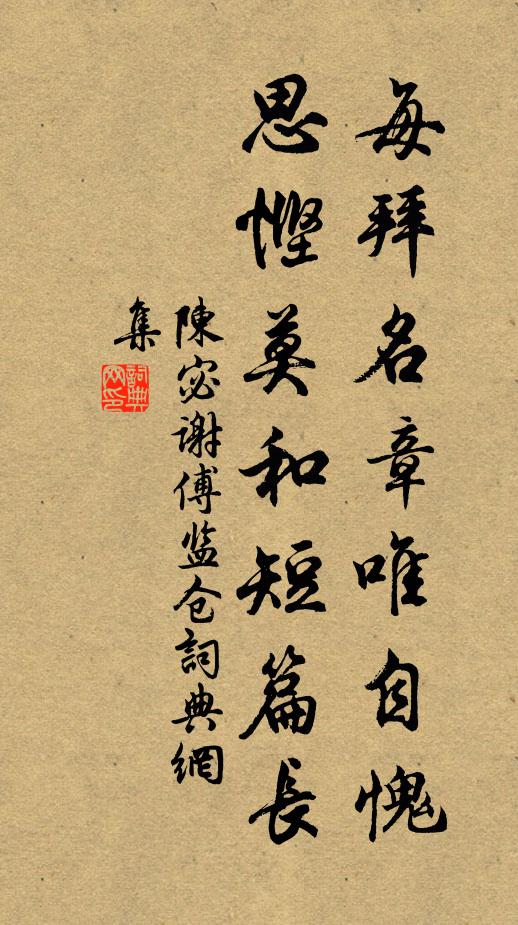 每拜名章唯自愧
思悭莫和短篇長
陳宓謝傅监仓詞典網
集
詞典网印